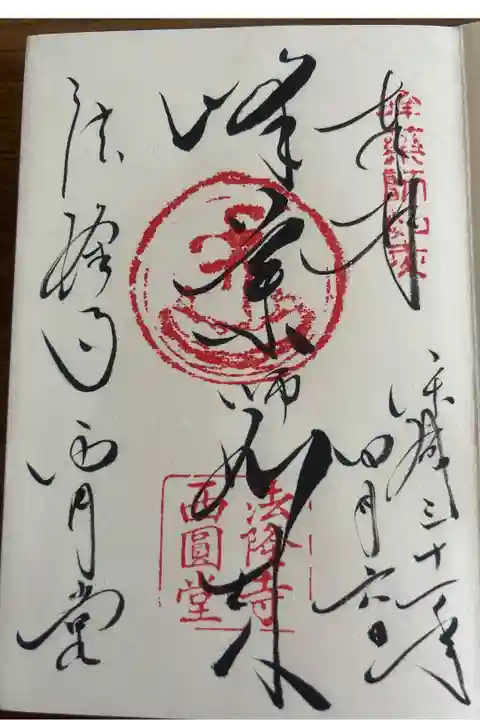 奉拝
峯薬師如来
平成三十一年
四月六日
峰薬師如来
法隆寺
西圓堂
法隆寺 西円堂